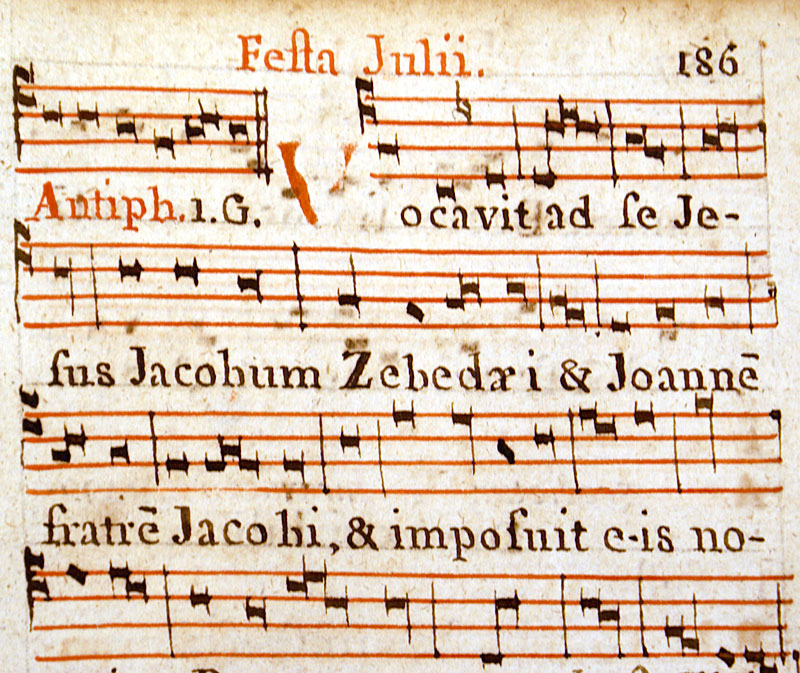 Feſta Julii. 186
Antiph. 1. G. Vocavit ad ſe Je-
ſus Jacobum Zebedæi & Joannē
fratrē Jacobi, & impoſuit e-is no-